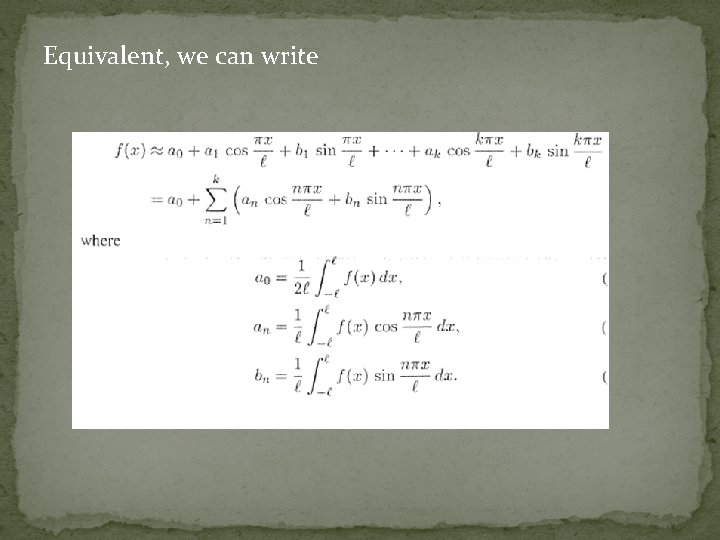 Equivalent, we can write
f(x) ≈ a₀ + a₁ cos πx/ℓ + b₁ sin πx/ℓ + ··· + aₖ cos kπx/ℓ + bₖ sin kπx/ℓ
= a₀ + ∑ₙ₌₁ᵏ (aₙ cos nπx/ℓ + bₙ sin nπx/ℓ) ,
where
a₀ = 1/2ℓ ∫₋ℓ^ℓ f(x) dx, (
aₙ = 1/ℓ ∫₋ℓ^ℓ f(x) cos nπx/ℓ dx, (
bₙ = 1/ℓ ∫₋ℓ^ℓ f(x) sin nπx/ℓ dx. (